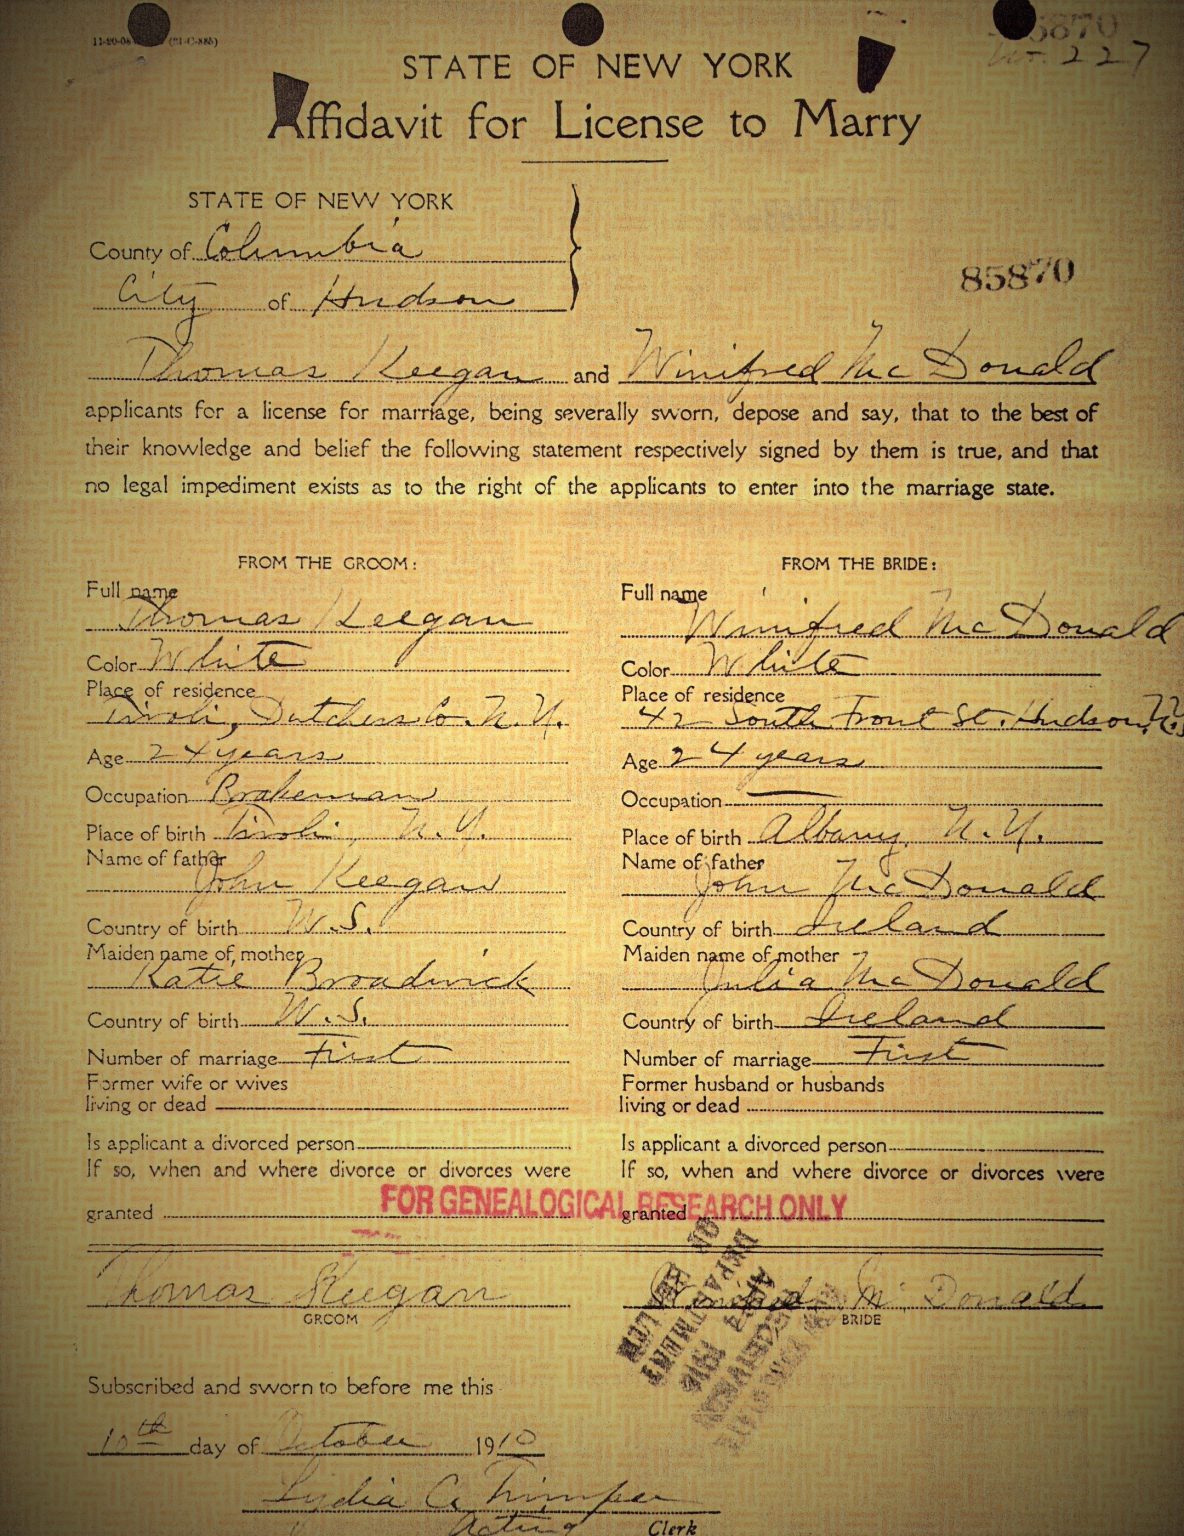 STATE OF NEW YORK
Affidavit for License to Marry
STATE OF NEW YORK
County of Columbia
City of Hudson
85870
Thomas Keegan and Winifred McDonald
applicants for a license for marriage, being severally sworn, depose and say, that to the best of
their knowledge and belief the following statement respectively signed by them is true, and that
no legal impediment exists as to the right of the applicants to enter into the marriage state.
FROM THE GROOM:
Full name
Thomas Keegan
Color White
Place of residence
Tivoli, Dutchess Co. N.Y.
Age 24 years
Occupation Brakeman
Place of birth Tivoli, N.Y.
Name of father
John Keegan
Country of birth U.S.
Maiden name of mother
Katie Broadwick
Country of birth U.S.
Number of marriage First
Former wife or wives
living or dead
Is applicant a divorced person
If so, when and where divorce or divorces were
granted
FROM THE BRIDE:
Full name
Winifred McDonald
Color White
Place of residence
42 South Front St. Hudson, N.Y.
Age 24 years
Occupation
Place of birth Albany, N.Y.
Name of father
John McDonald
Country of birth Ireland
Maiden name of mother
Julia McDonald
Country of birth Ireland
Number of marriage First
Former husband or husbands
living or dead
Is applicant a divorced person
If so, when and where divorce or divorces were
granted
FOR GENEALOGICAL RESEARCH ONLY
Thomas Keegan
GROOM
Winifred McDonald
BRIDE
Subscribed and sworn to before me this
10th day of October 1910
Lydia C. Trimper
Acting Clerk